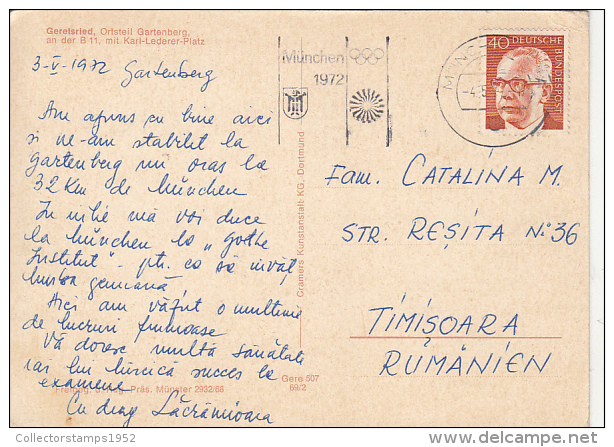 Geretsried, Ortsteil Gartenberg,
an der B 11, mit Karl-Lederer-Platz
3-V-1972 Gartenberg
Am ajuns cu bine aici
și ne-am stabilit la
gartenberg un oraș la
32 Km de München
În iulie mă voi duce
la München la „gothe
Institut" ptr. ca să învăț
limba germană
Aici am văzut o mulțime
de lucruri frumoase
Vă doresc multă sănătate
iar lui succes la
examene
Cu drag Lăcrămioara
München
1972
MÜNCHEN
-4.5
40 DEUTSCHE BUNDESPOST
Fam. CATALINA M.
STR. REȘIȚA No 36
TIMIȘOARA
RUMÄNIEN
Cramers Kunstanstalt KG, Dortmund
Gere 507
69/2
Freigeg. d. Reg.-Präs. Münster 2932/68
Collectorstamps1952
delcampe.net